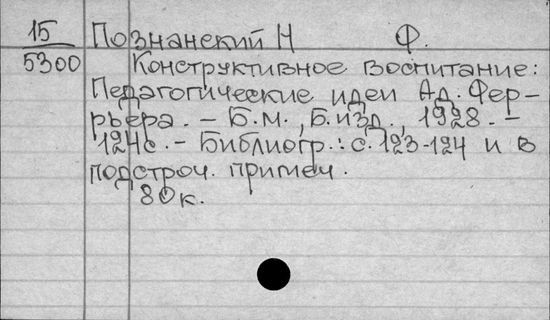 15 Познанский Н Ф.
5300 Конструктивное воспитание:
Педагогические идеи Ад. Фер-
рьера. – Б.м., Б.изд., 1928. –
124с. – Библиогр.: с. 123-124 и в
подстроч. примеч.
80к.